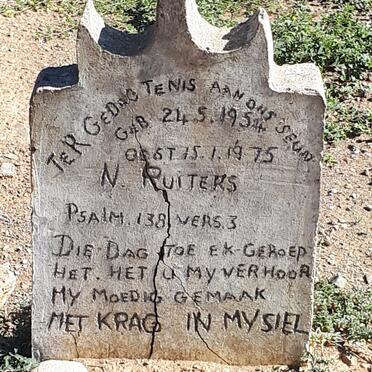 TER GEDAGTENIS AAN ONS SEUN
GEB 24.5.1954
GEST 15.1.1975
N. RUITERS
PSALM. 138 VERS. 3
DIE DAG TOE EK GEROEP
HET. HET U MY VERHOOR
MY MOEDIG GEMAAK
MET KRAG IN MY SIEL